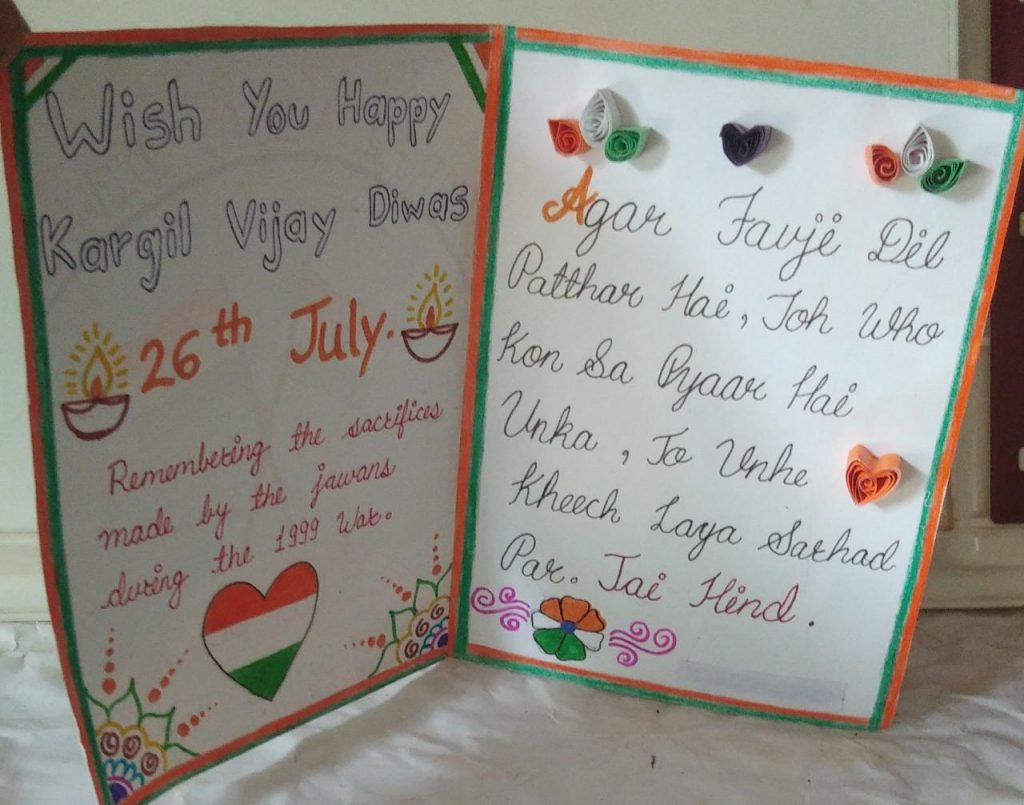 Wish You Happy
Kargil Vijay Diwas
26th July.
Remembering the sacrifices
made by the jawans
during the 1999 War.
Agar Favji Dil
Patthar Hai, Toh Who
Kon Sa Pyaar Hai
Unka, To Unhe
Kheech Laya Sarhad
Par. Jai Hind.